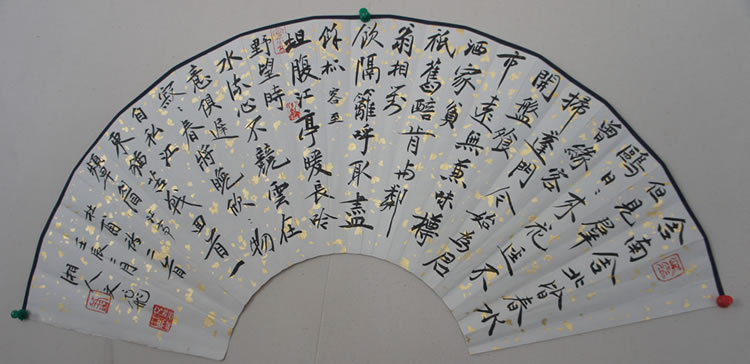 舍南舍北皆春水
但見羣
鷗日日來花徑不
曾緣客
掃蓬門今始為君
開盤飱
市遠無兼味樽
酒家貧
祇舊醅肯与鄰
翁相對
飲隔籬呼取盡
餘杯 客至
坦腹江亭暖長吟
野望時
水流心不競雲在
意俱遲
寂寂春將晚欣欣物
自私江
東猶苦戰回首一
顰眉
杜甫詩二首
壬辰二月
湘人